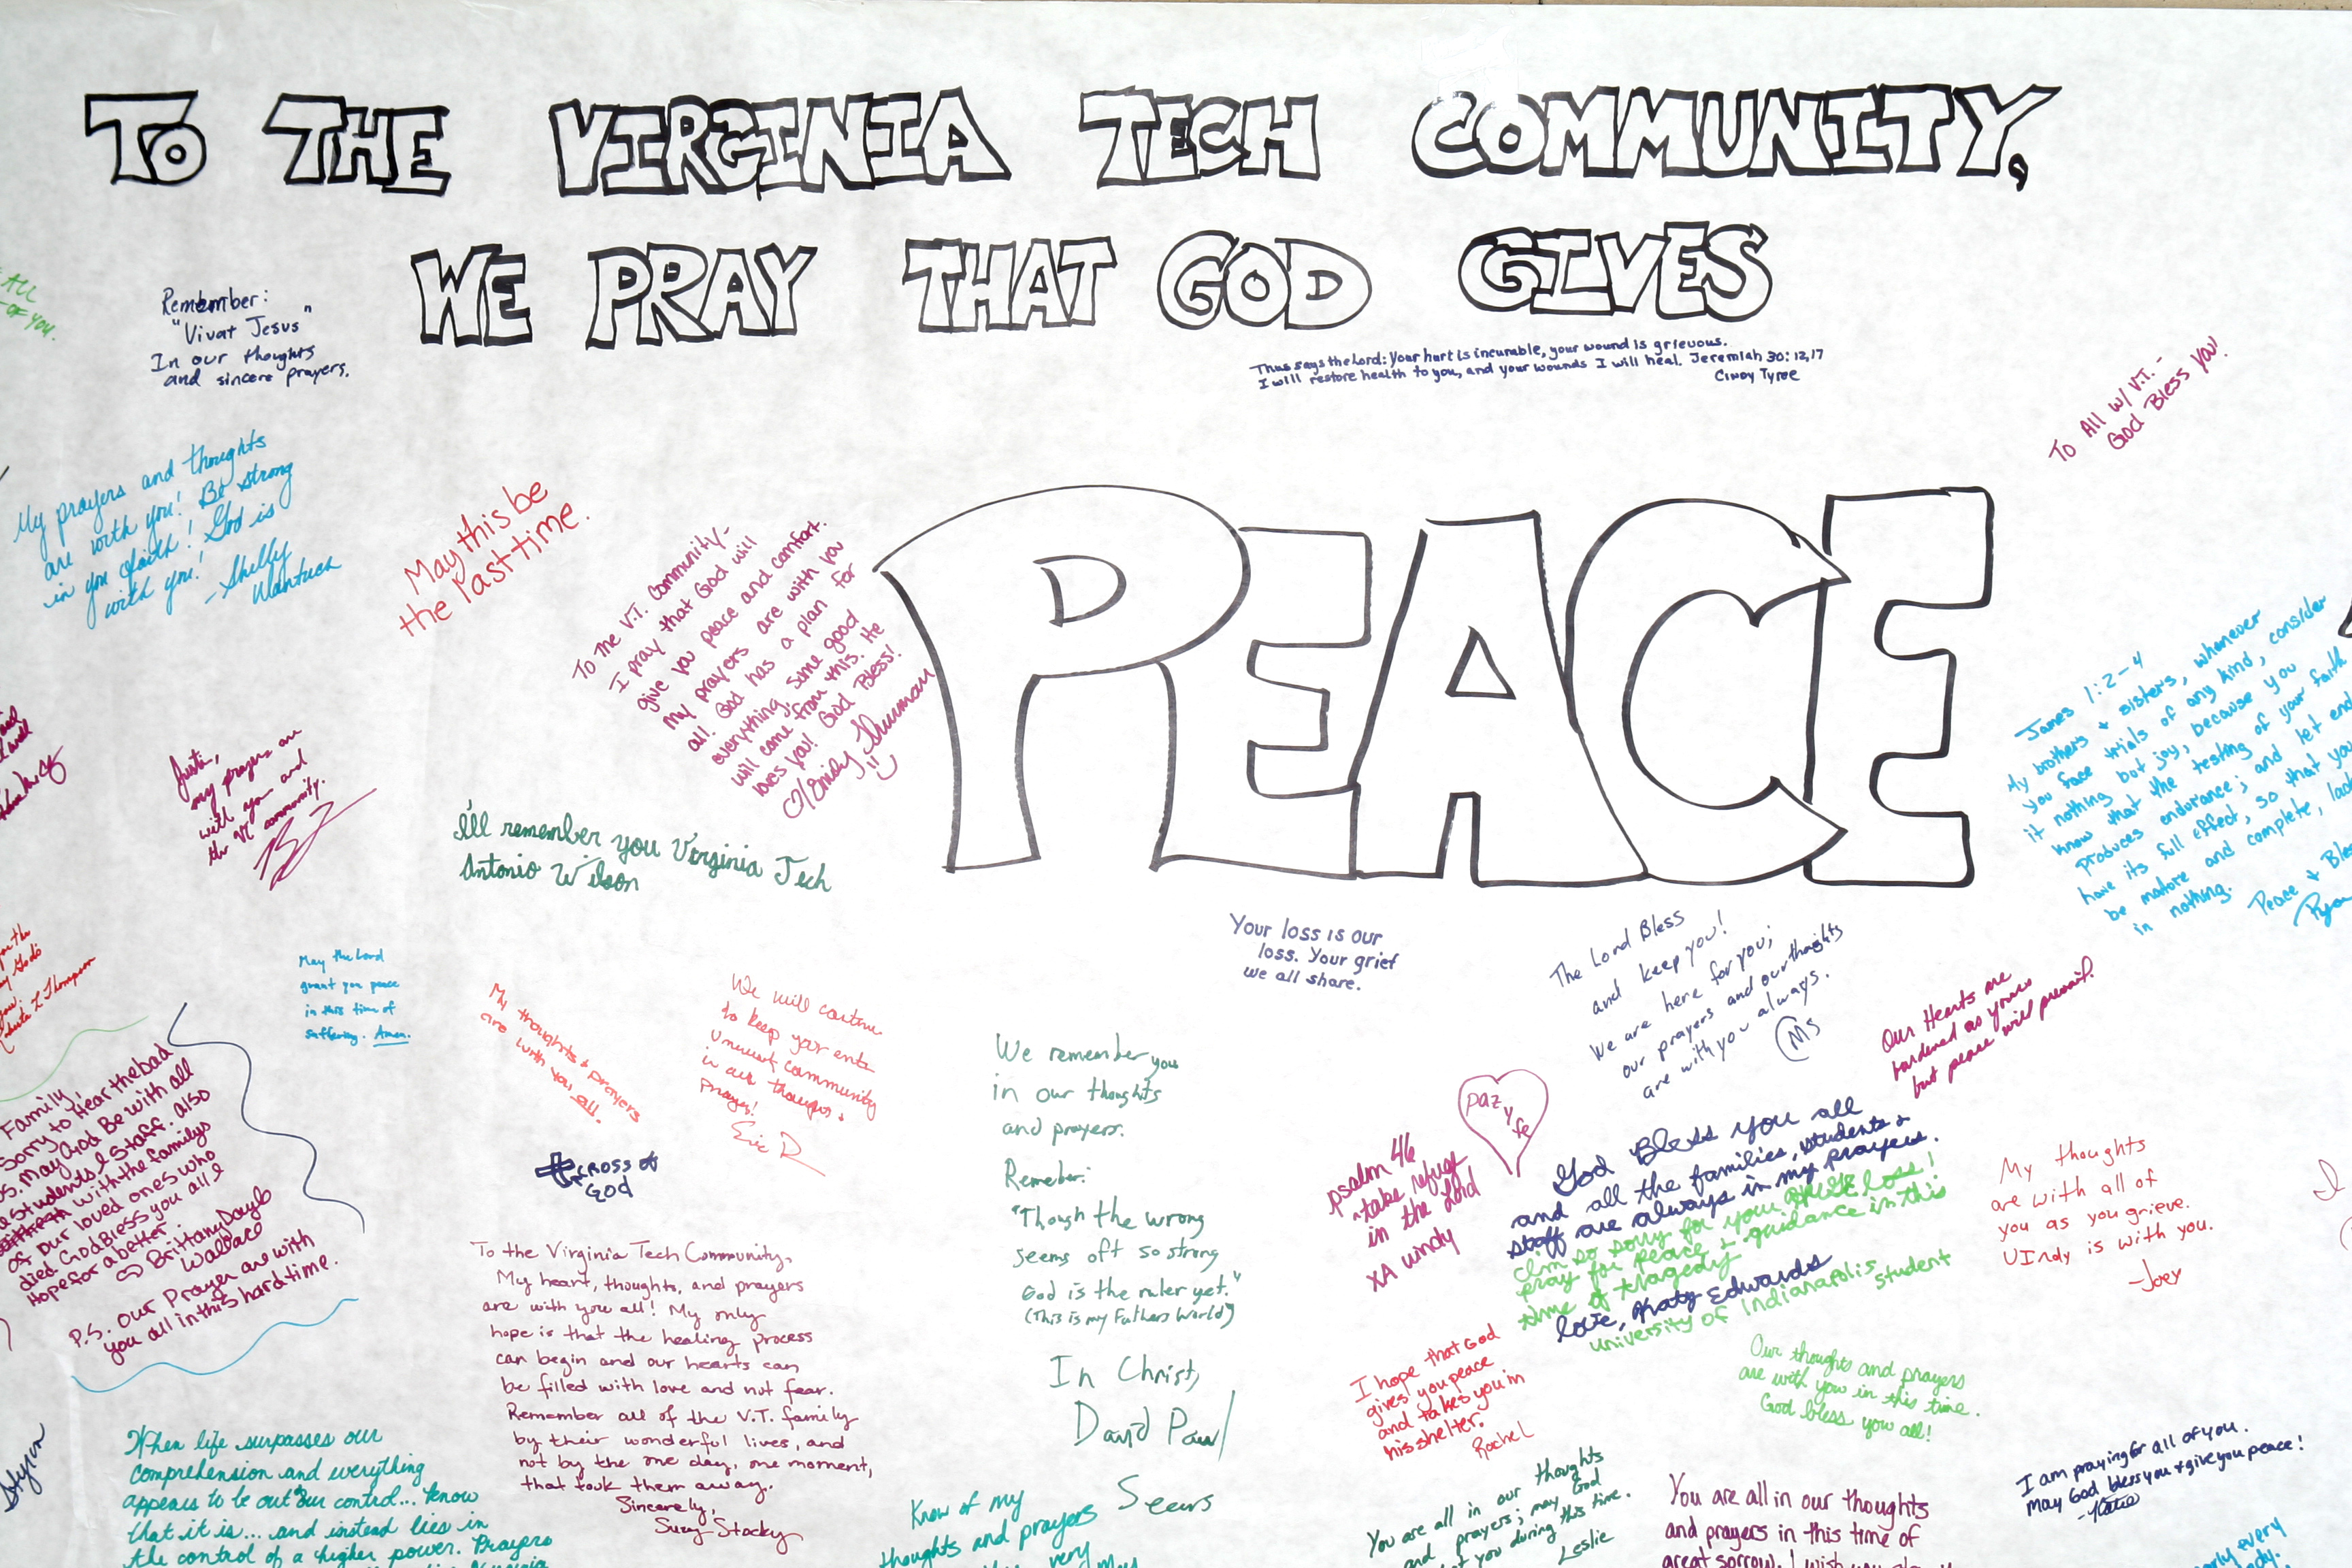 TO THE VIRGINIA TECH COMMUNITY,
WE PRAY THAT GOD GIVES
PEACE
ALL
OF YOU.
Remember:
"Vivat Jesus"
In our thoughts
and sincere prayers.
Thus says the Lord: Your hurt is incurable, your wound is grievous.
I will restore health to you, and your wounds I will heal. Jeremiah 30:12,17
Cindy Tyree
To All w/ V.T. -
God Bless you.
My prayers and thoughts
are with you! Be strong
in you faith! God is
with you!
- Shelly
May this be
the last time.
To the V.T. Community-
I pray that God will
give you peace and comfort.
My prayers are with you
all. God has a plan for
everything, some good
will come from this. He
loves you! God Bless!
Emily Thurman
James 1:2-4
My brothers + sisters, whenever
you face trials of any kind, consider
it nothing but joy, because you
know that the testing of your faith
produces endurance; and let
have its full effect, so that you
be mature and complete,
in nothing.
Peace +
Ryan
Justin,
my prayers are
with you and
the VT community.
I'll remember you Virginia Tech
Antonio Wilson
Your loss is our
loss. Your grief
we all share.
The Lord Bless
and keep you!
We are here for you;
our prayers and our thoughts
are with you always.
MS
Our Hearts are
hardened as yours
but peace will prevail.
L. Thompson
May the Lord
grant you peace
in this time of
suffering. Amen.
My thoughts + prayers
are with you all.
We will continue
to keep your
community
in our thoughts +
Prayers!
Eric D
Cross of
God
We remember you
in our thoughts
and prayers.
Remember:
"Though the wrong
seems oft so strong
God is the ruler yet."
(This is my Fathers World)
In Christ,
David Paul
Sears
paz
y
fe
psalm 46
"take refuge
in the Lord
XA windy
God Bless you all
and all the families, students +
staff are always in my prayers.
I'm so sorry for your HUGE loss! I
pray for peace + guidance in this
time of tragedy
love, Katy Edwards
University of Indianapolis student
My thoughts
are with all of
you as you grieve.
UIndy is with you.
-Joey
Family,
Sorry to Hear the bad
May God Be with all
Students & Staff. also
with the familys
of our loved ones who
died God Bless you all &
Hope for a better
Brittany Dayib
Wallace
P.S. our Prayer are with
you all in this hard time.
To the Virginia Tech Community,
My heart, thoughts, and prayers
are with you all! My only
hope is that the healing process
can begin and our hearts can
be filled with love and not fear.
Remember all of the V.T. family
by their wonderful lives, and
not by the one day, one moment,
that took them away.
Sincerely,
Suzy Stocky
I hope that God
gives you peace
and takes you in
his shelter.
Rachel
Our thoughts and prayers
are with you in this time.
God bless you all!
When life surpasses our
comprehension and everything
appears to be out our control... know
that it is... and instead lies in
the control of a higher power. Prayers
Know of my
thoughts and prayers
very
May
You are all in our thoughts
and prayers; may God
you during this time.
Leslie
You are all in our thoughts
and prayers in this time of
great sorrow. I wish you
I am praying for all of you.
May God bless you + give you peace!
- Katie
every